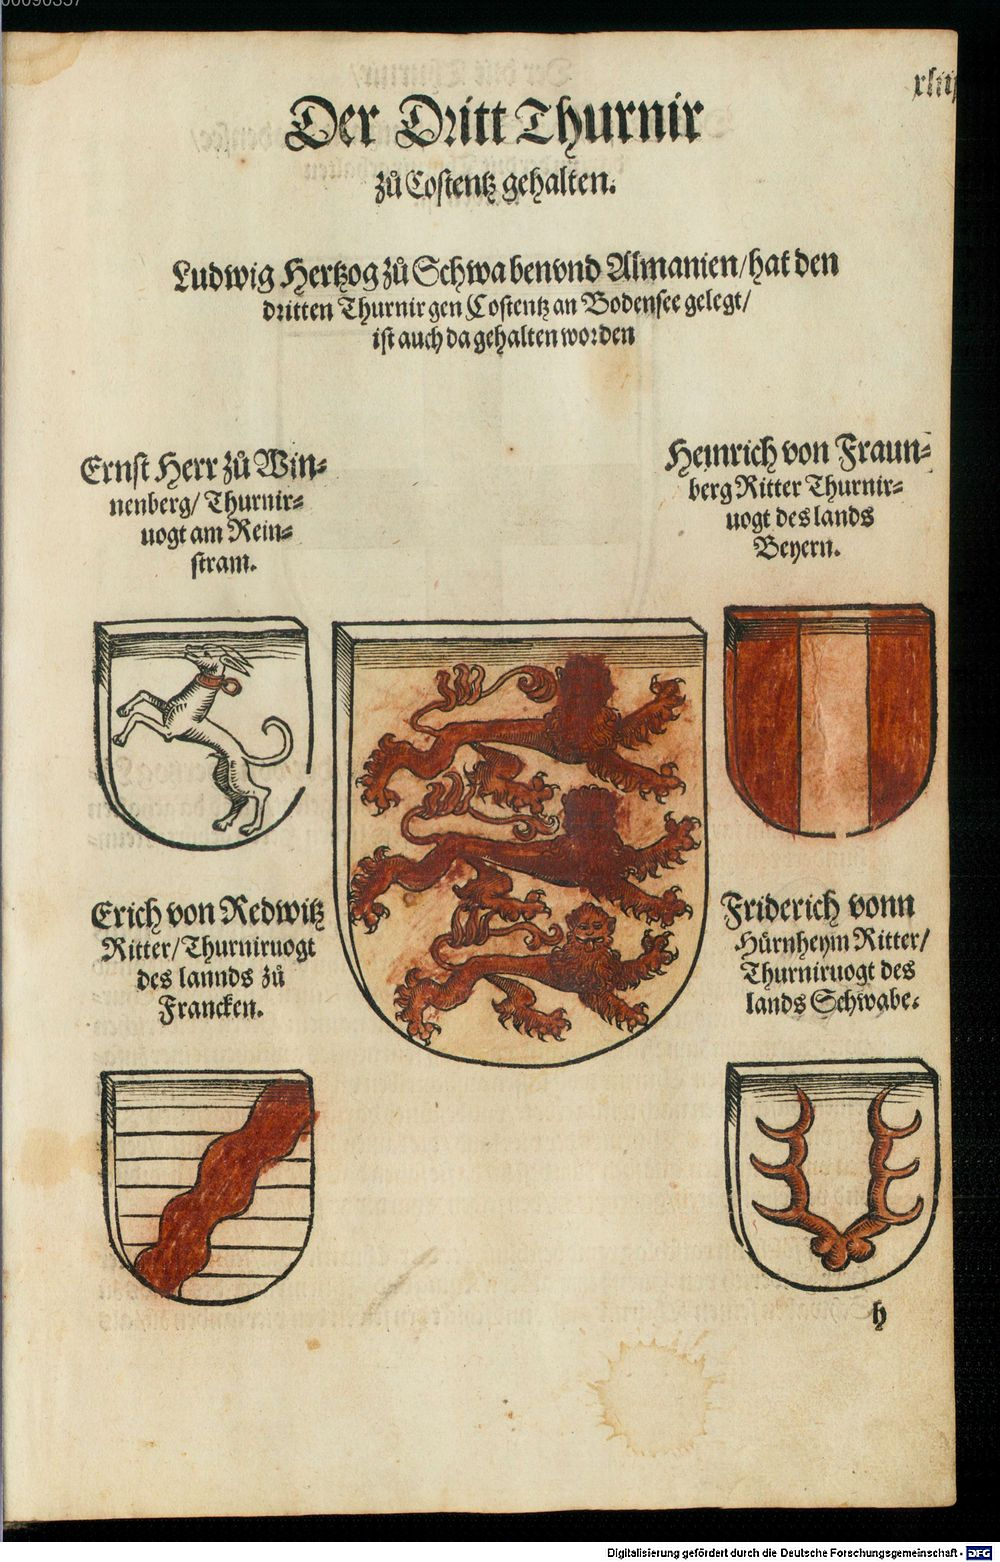 Der Dritt Thurnir
zů Costentz gehalten.
Ludwig Hertzog zů Schwaben vnd Almanien/hat den
dritten Thurnir gen Costentz an Bodensee gelegt/
ist auch da gehalten worden
Ernst Herr zů Win⸗
nenberg/ Thurnir⸗
uogt am Rein⸗
stram.
Heinrich von Fraun⸗
berg Ritter Thurnir⸗
uogt des lands
Beyern.
Erich von Redwitz
Ritter/Thurniruogt
des lannds zů
Francken.
Friderich vonn
Hürnheym Ritter/
Thurniruogt des
lands Schwabe.
h
Digitalisierung gefördert durch die Deutsche Forschungsgemeinschaft - DFG